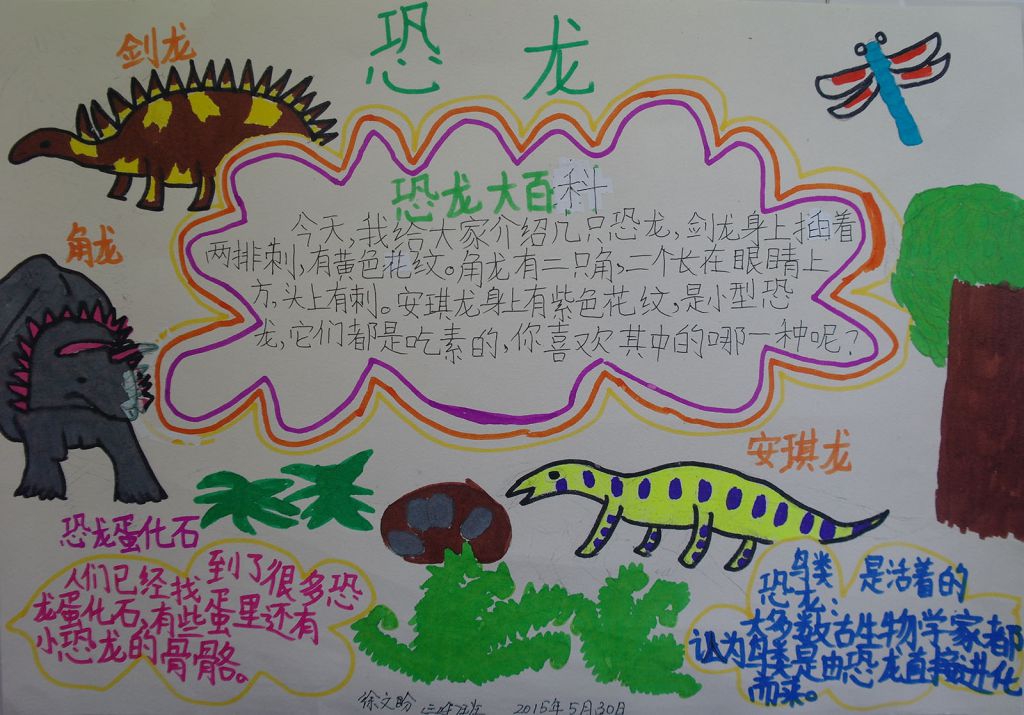 恐龙
剑龙
恐龙大百科
今天,我给大家介绍几只恐龙,剑龙身上插着
两排刺,有黄色花纹。角龙有三只角,二个长在眼睛上
方,头上有刺。安琪龙身上有紫色花纹,是小型恐
龙,它们都是吃素的,你喜欢其中的哪一种呢?
角龙
安琪龙
恐龙蛋化石
人们已经找到了很多恐
龙蛋化石,有些蛋里还有
小恐龙的骨骼。
鸟类是活着的
恐龙:
大多数古生物学家都
认为鸟类是由恐龙直接进化
而来。
徐文盼 2015年5月30日